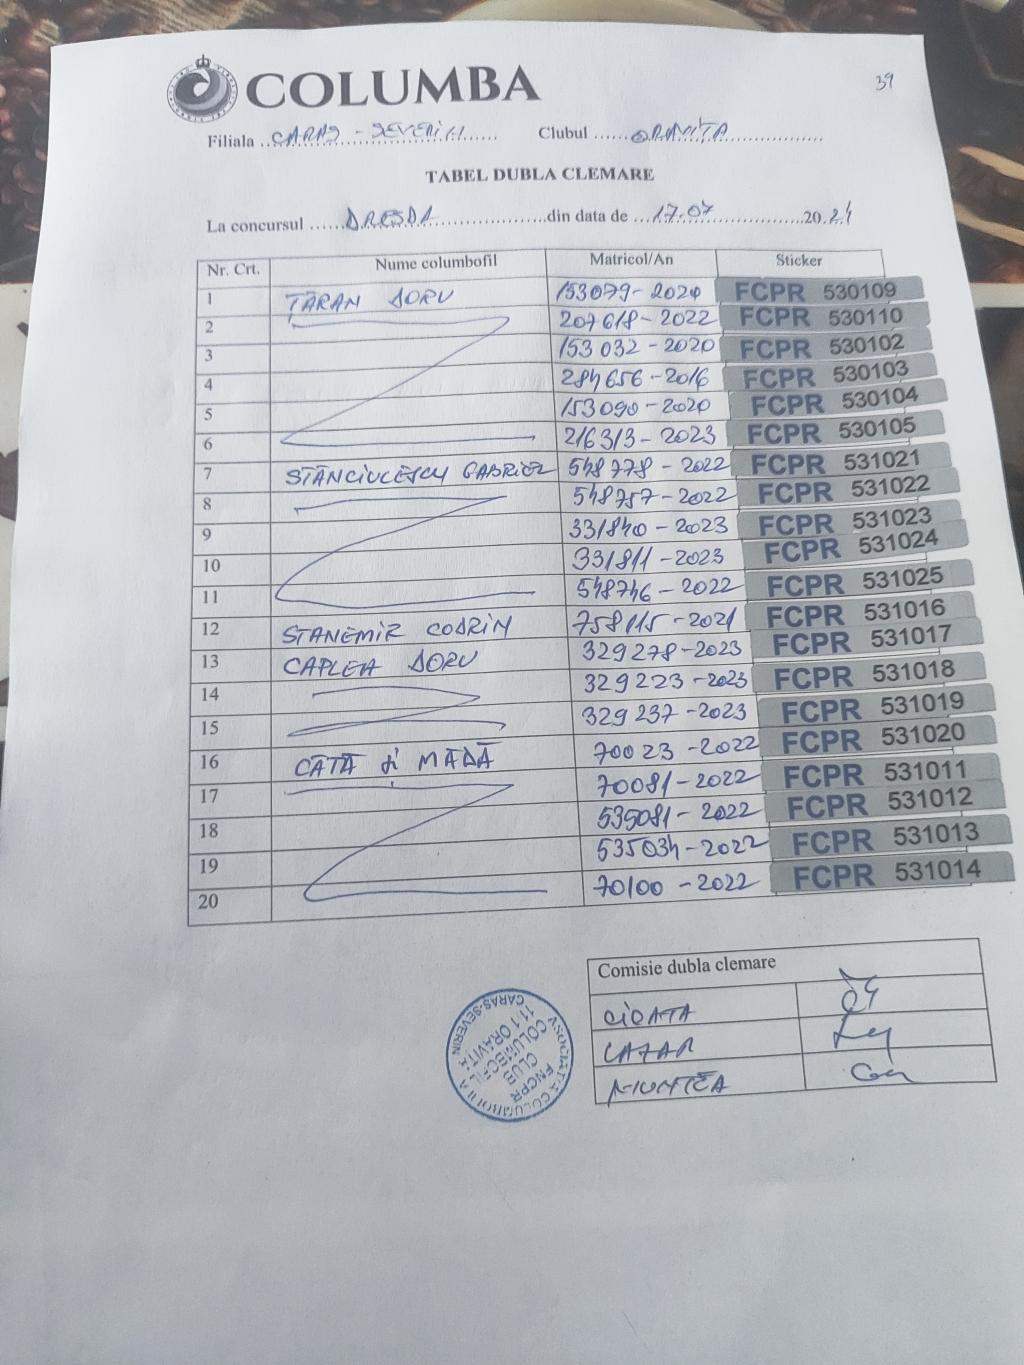 COLUMBA
39
Filiala ..CARAȘ-SEVERIN...... Clubul ......ORAVIȚA..............
TABEL DUBLA CLEMARE
La concursul ......DRESDA......................din data de ...17.07..................20.24
Nr. Crt. Nume columbofil Matricol/An Sticker
1 ȚĂRAN DORU 153079-2020 FCPR 530109
2 207618-2022 FCPR 530110
3 153032-2020 FCPR 530102
4 284656-2016 FCPR 530103
5 153090-2020 FCPR 530104
6 216313-2023 FCPR 530105
7 STĂNCIULESCU GABRIEL 548778-2022 FCPR 531021
8 548757-2022 FCPR 531022
9 331840-2023 FCPR 531023
10 331811-2023 FCPR 531024
11 548746-2022 FCPR 531025
12 STANEMIR CODRIN 758115-2021 FCPR 531016
13 CAPLEA DORU 329278-2023 FCPR 531017
14 329223-2023 FCPR 531018
15 329237-2023 FCPR 531019
16 CĂTĂ și MĂDĂ 70023-2022 FCPR 531020
17 70081-2022 FCPR 531011
18 535081-2022 FCPR 531012
19 535034-2022 FCPR 531013
20 70100-2022 FCPR 531014
Comisie dubla clemare
CIOATA
LAZAR
MUNTEA
ASOCIATIA COLUMBOFILA
CARAS-SEVERIN
FNCPR
CLUB
COLUMBOFIL
11.1 ORAVITA